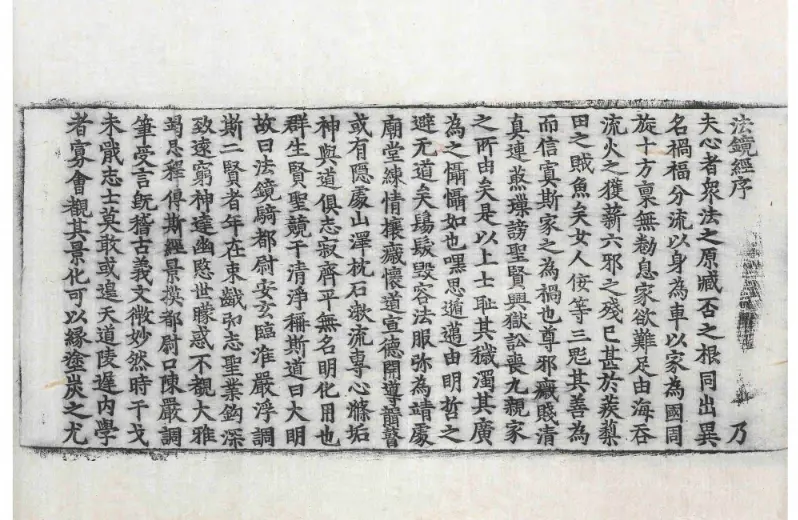 法鏡經序 乃
夫心者衆法之原臧否之根同出異
名禍福分流以身為車以家為國周
旋十方禀無勌息家欲難足由海吞
流火之獲薪六邪之殘已甚於蒺䔧
田之賊魚矣女人佞等三其善為
而信寡斯家之為禍也尊邪癥賤清
真連謗聖賢興獄訟喪九親家
之所由矣是以上士耻其穢濁其廣
為之懾懾如也嘿思遁邁由明哲之
避无道矣鬄髮毀容法服弥為靖處
廟堂練情攘癥懷道宣德開導聾瞽
或有隱處山澤枕石漱流專心滌垢
神與道俱志寂齊平無名明化用也
群生賢聖競于清淨稱斯道曰大明
故曰法鏡騎都尉安玄臨淮嚴浮調
斯二賢者年在束齔弘志聖業鈎深
致遠窮神達幽愍世矇惑不覩大雅
竭思釋傳斯經景摸都尉口陳嚴調
筆受言旣稽古義又微妙然時干戈
未戢志士莫敢或遑天道陵遲内學
者寡會覩其景化可以縁塗炭之尤